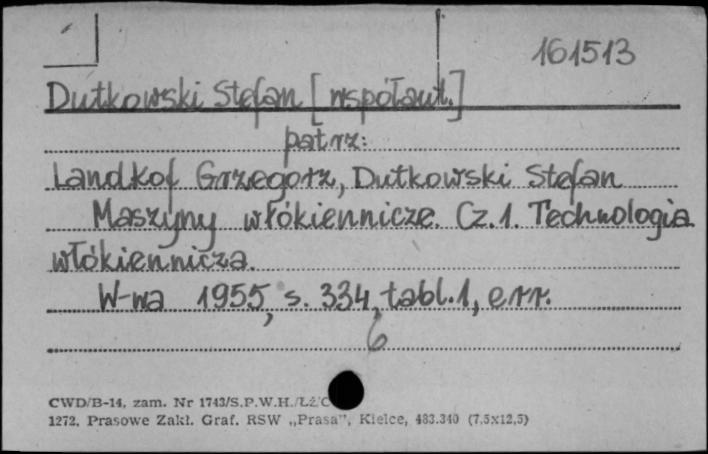 161513
Dutkowski Stefan [współaut.]
patrz:
Landkof Grzegorz, Dutkowski Stefan
Maszyny włókiennicze. Cz. 1. Technologia
włókiennicza.
W-wa 1955, s. 334, tabl. 1, err.
6
CWD/B-14, zam. Nr 1743/S.P.W.H./ŁŹ/C
1272. Prasowe Zakł. Graf. RSW „Prasa", Kielce, 483.340 (7,5x12,5)